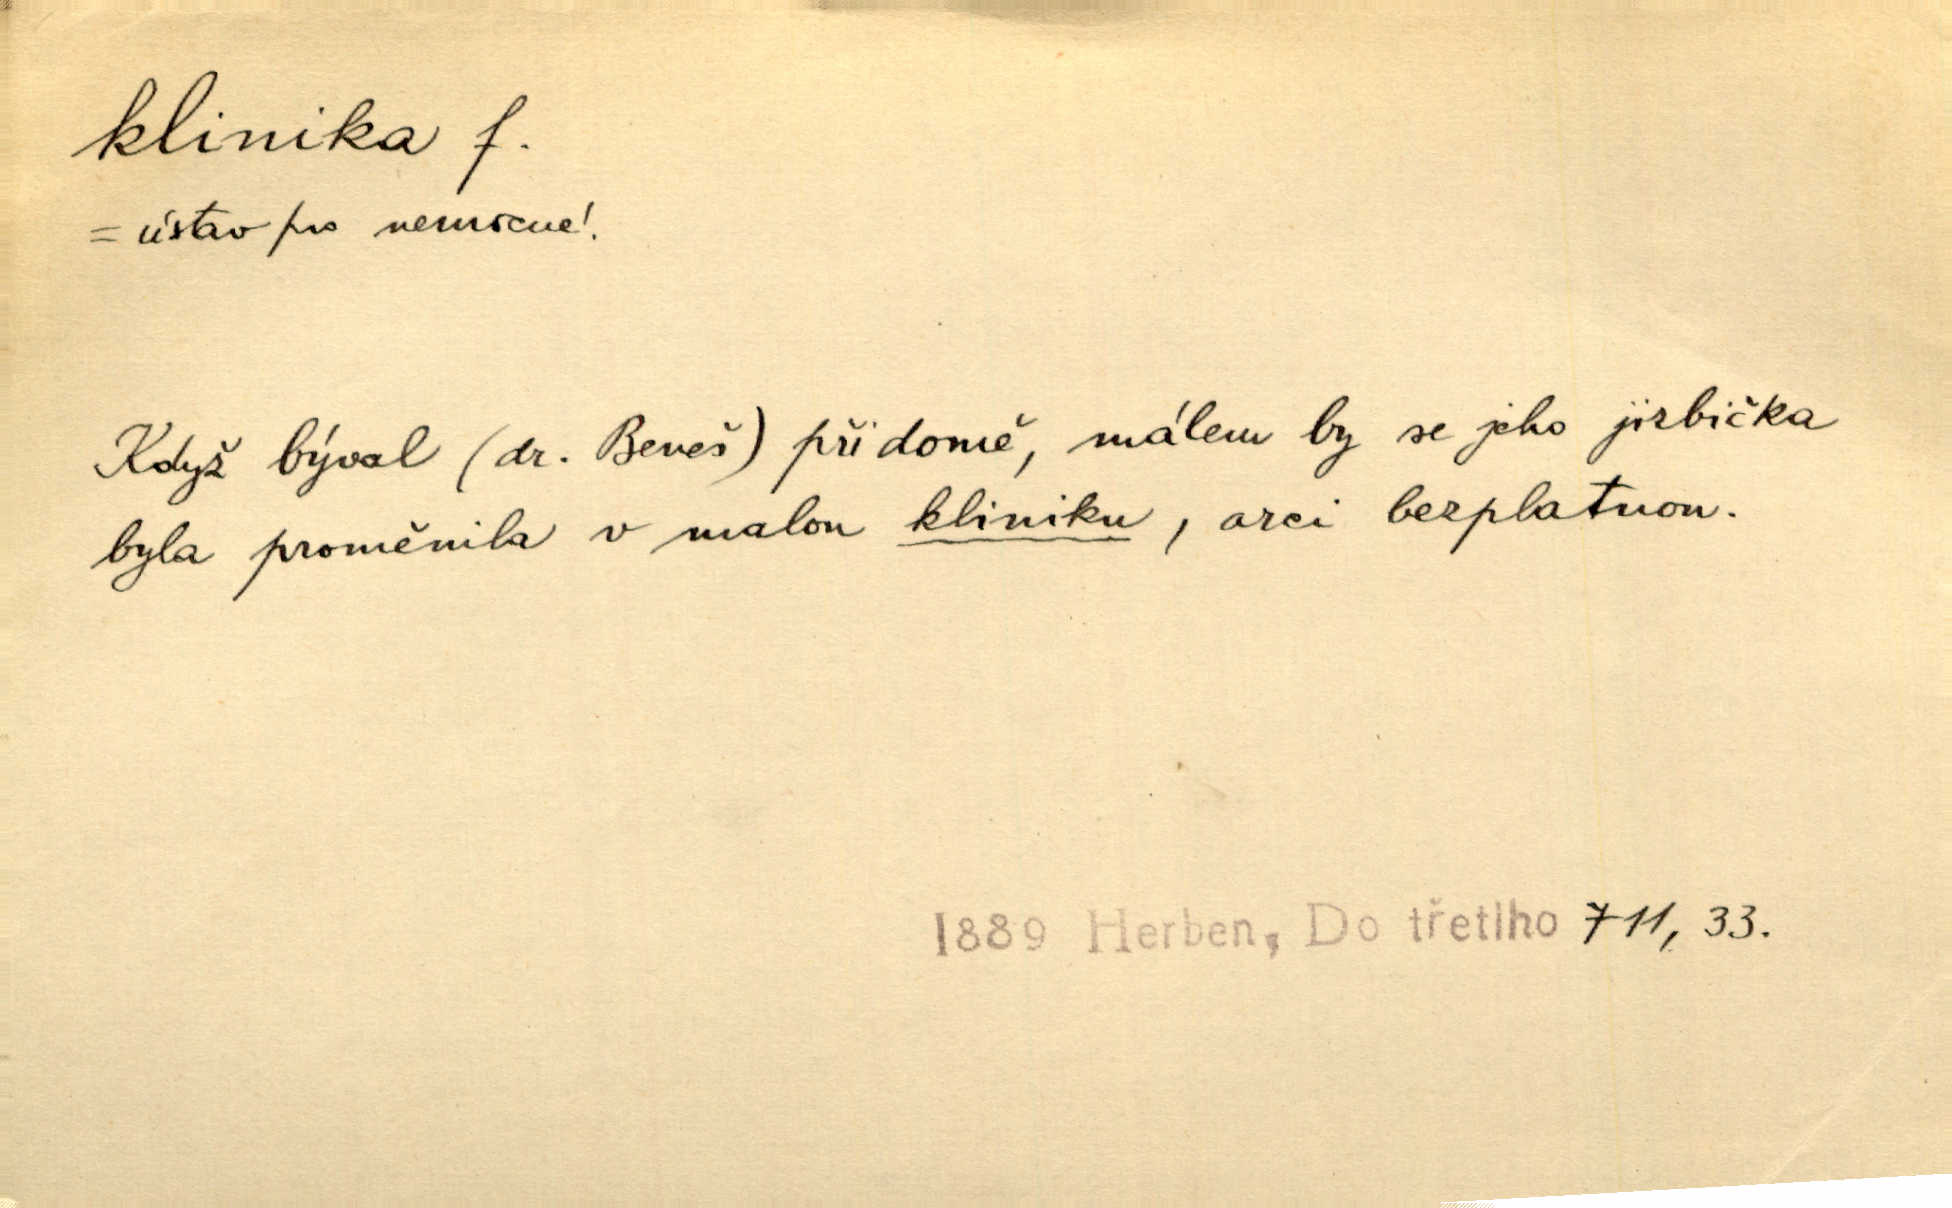 klinika f.
= ústav pro nemocné.
Když býval (dr. Beneš) při domě, málem by se jeho jizbička
byla proměnila v malou kliniku, arci bezplatnou.
1889 Herben, Do třetího 711, 33.